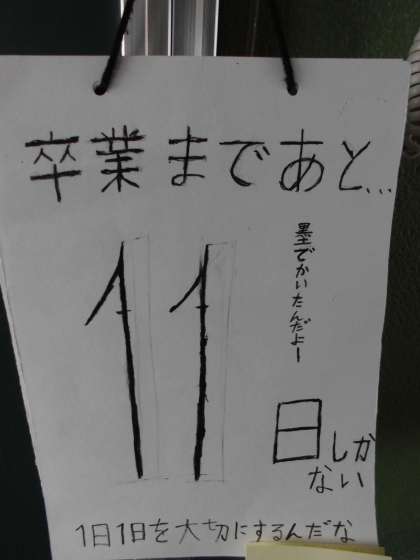 卒業まであと...
11
墨でかいたんだよー
日しか
ない
1日1日を大切にするんだな